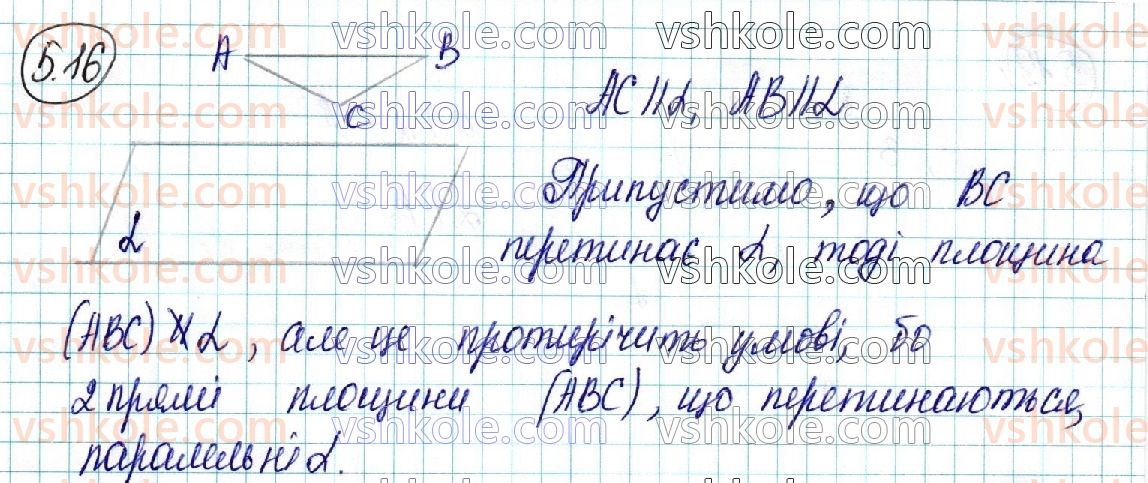 5.16
A B
C
AC∥α, AB∥α
α
Припустимо, що BC
перетинає α, тоді площина
(ABC) ∦ α, але це протирічить умові, бо
2 прямі площини (ABC), що перетинаються,
паралельні α.
vshkole.com